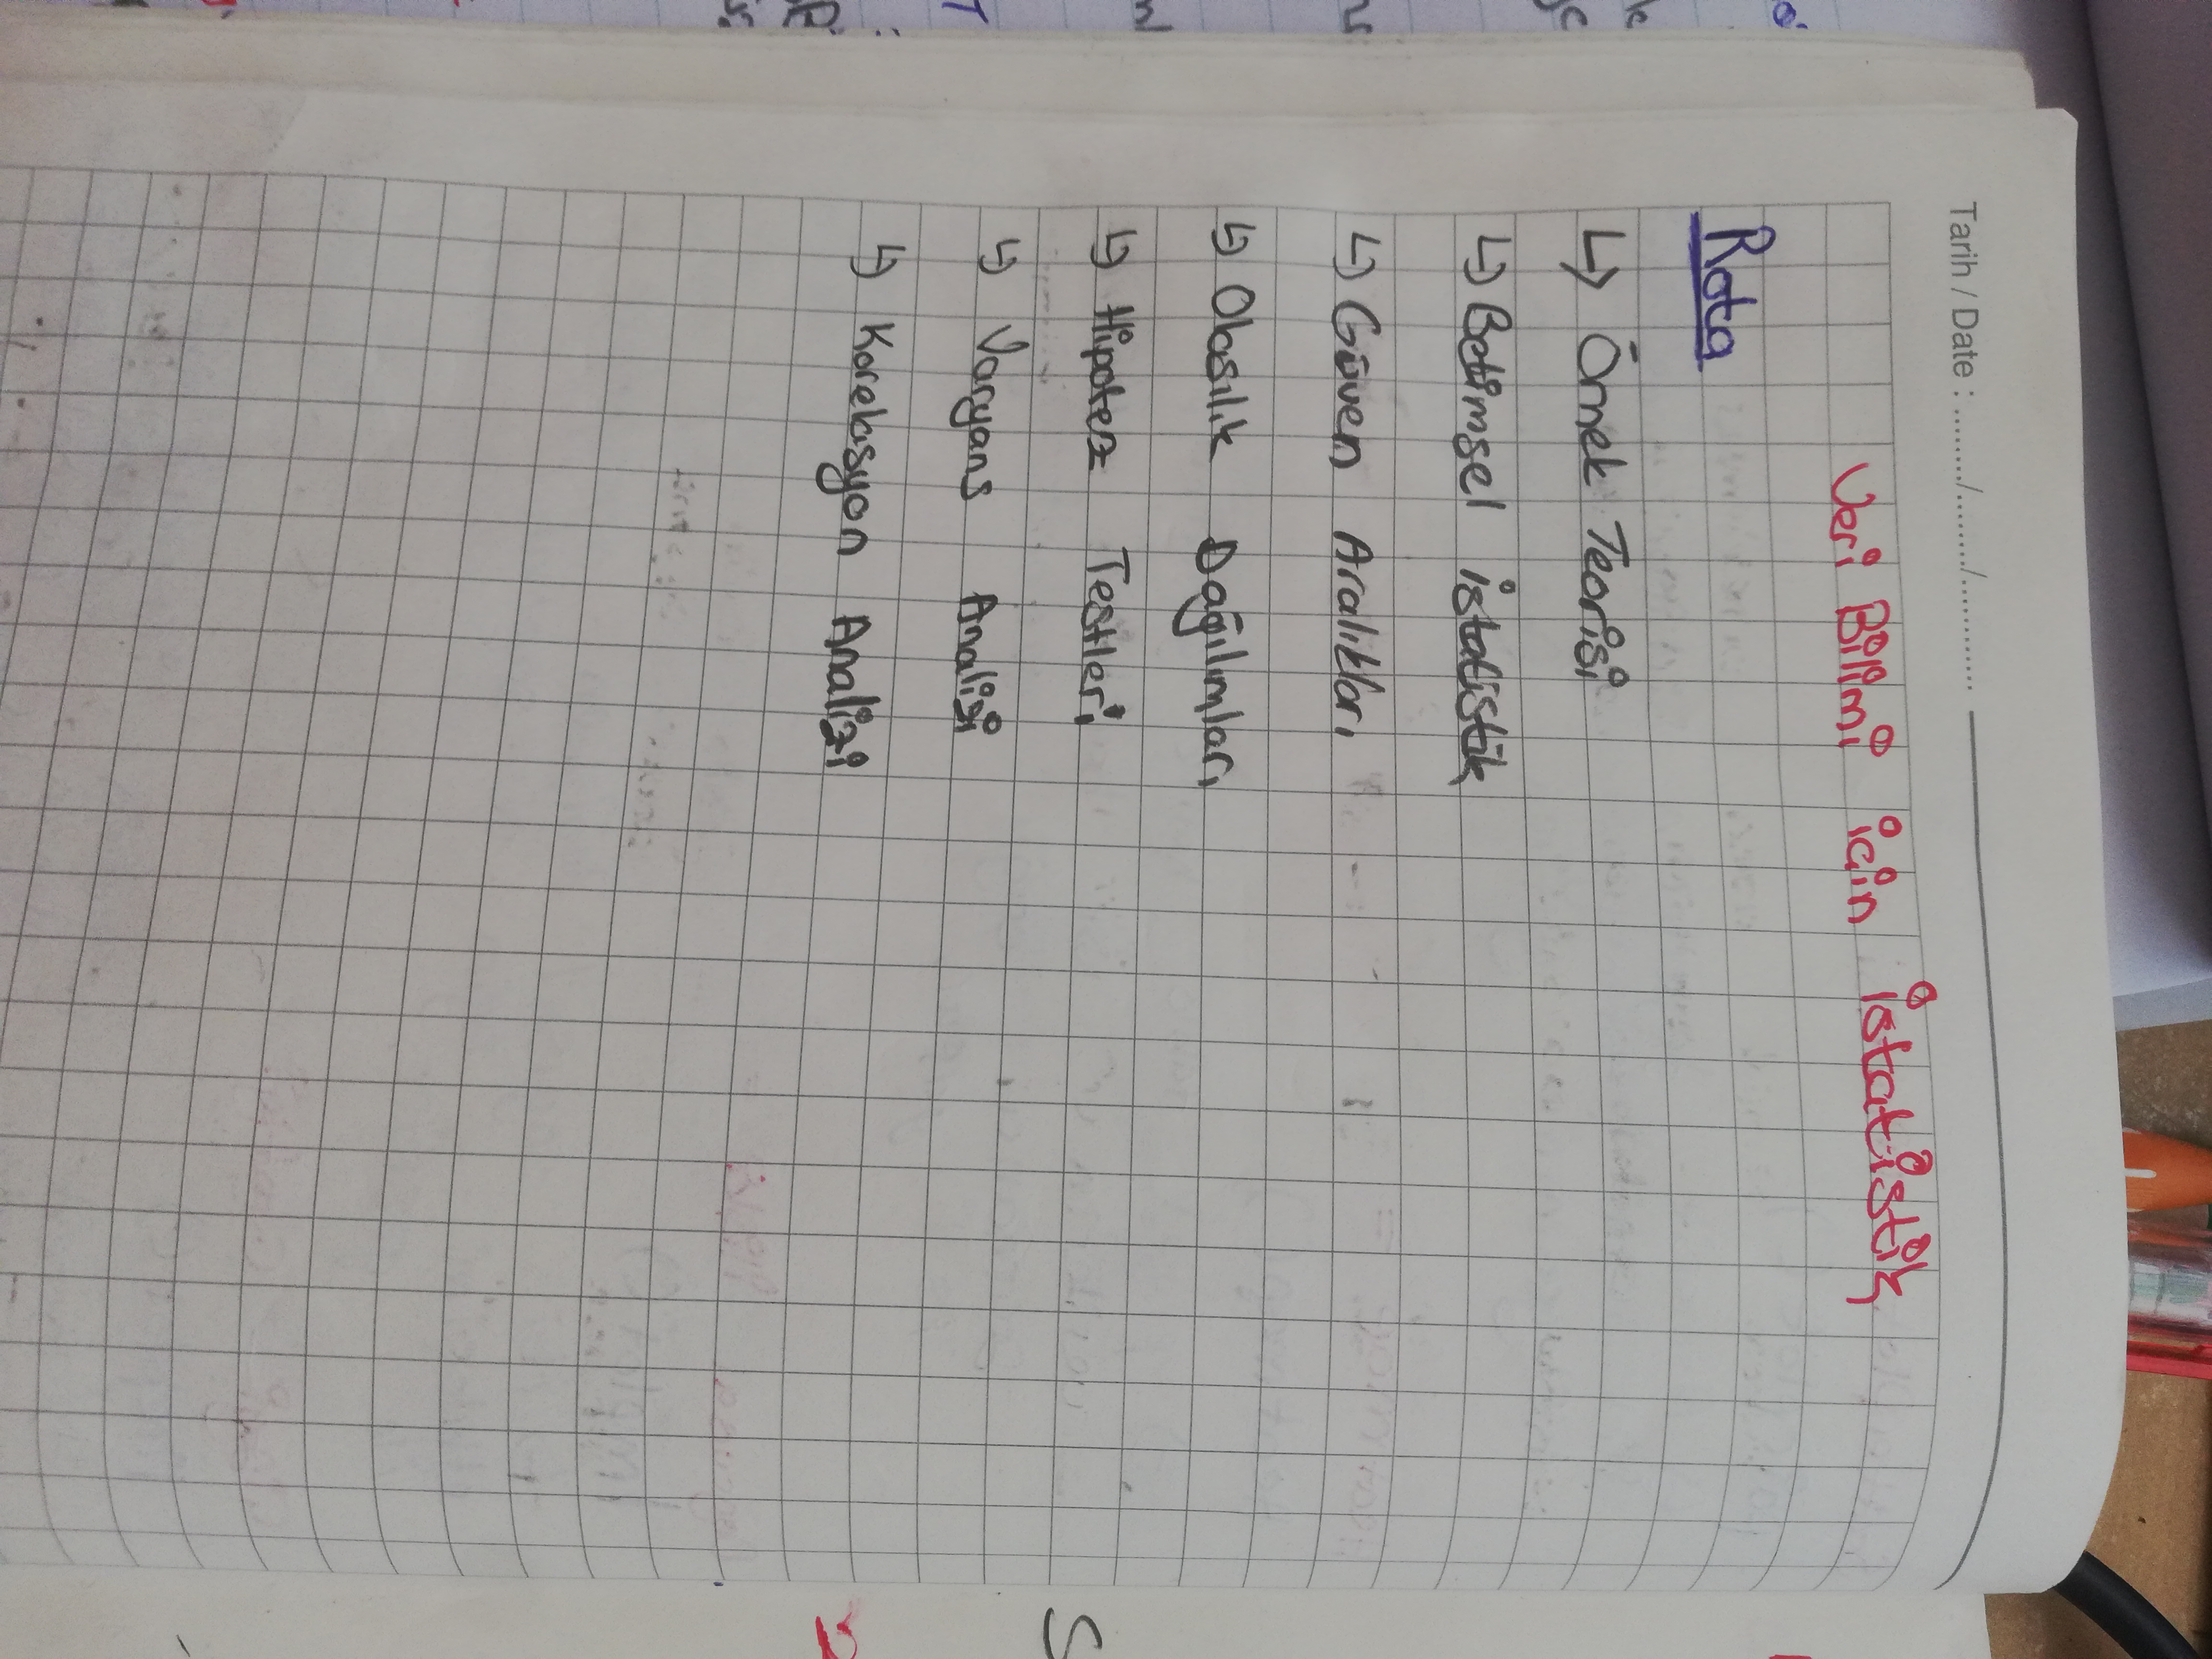 Tarih / Date : ......../......../............
Veri Bilimi için İstatistik
Rota
↳ Örnek Teorisi
↳ Betimsel İstatistik
↳ Güven Aralıkları
↳ Olasılık Dağılımları
↳ Hipotez Testleri
↳ Varyans Analizi
↳ Korelasyon Analizi